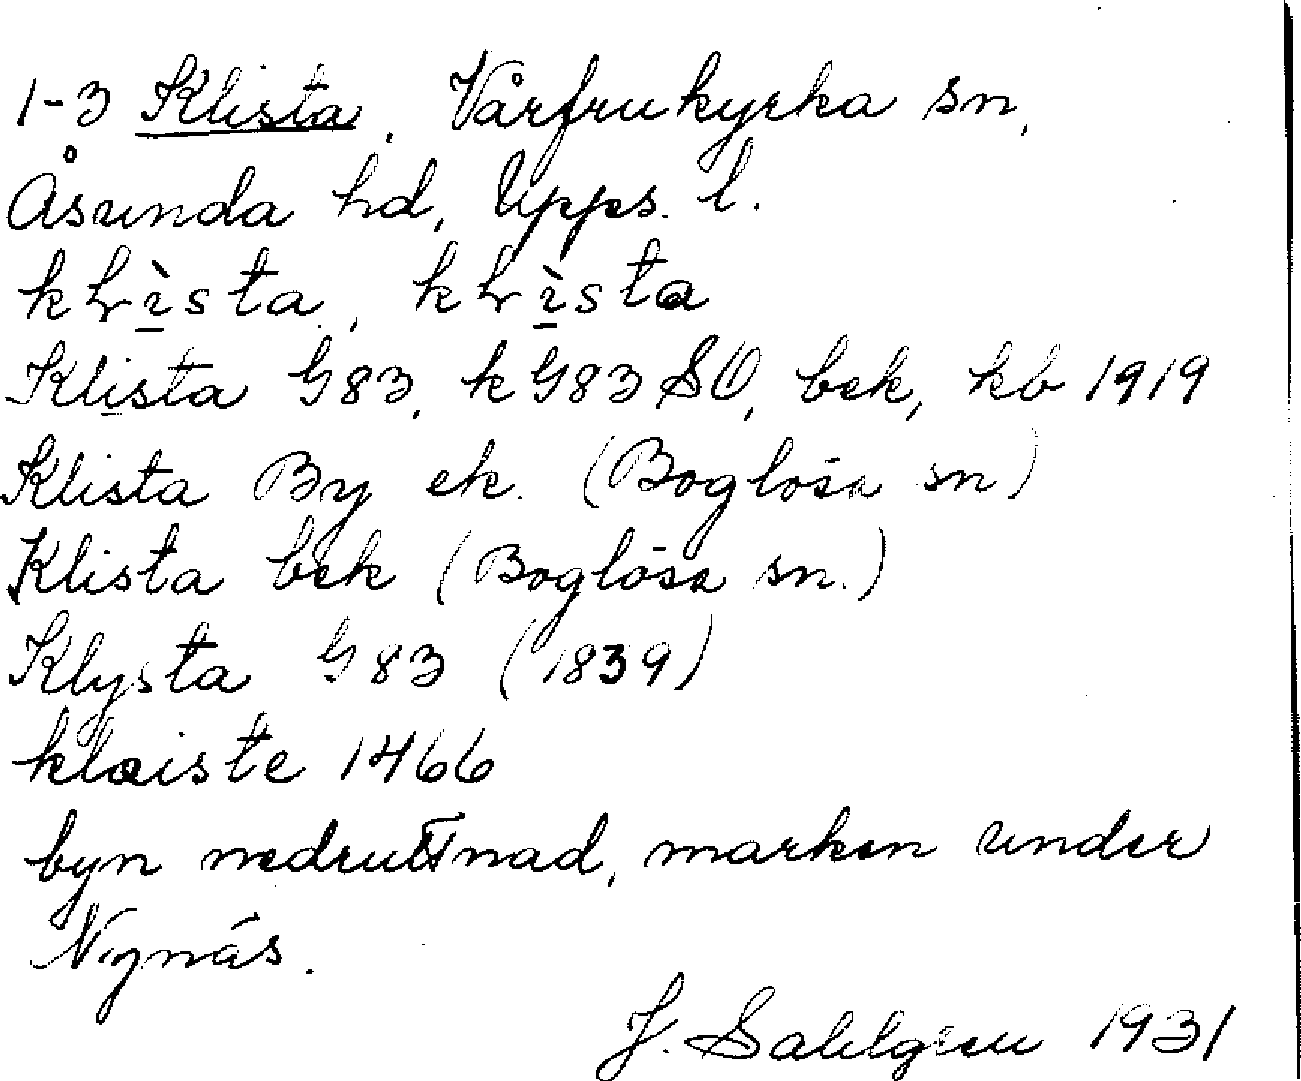 1-3 Klista, Vårfrukyrka sn,
Åsunda hd, Upps. l.
klista, klista
Klista G83, k G83 SO, bek, kb 1919
Klista By ek. (Boglösa sn)
Klista bek (Boglösa sn.)
Klysta G83 (1839)
klæiste 1466
byn nedruttnad, marken under
Nynäs.
J. Sahlgren 1931